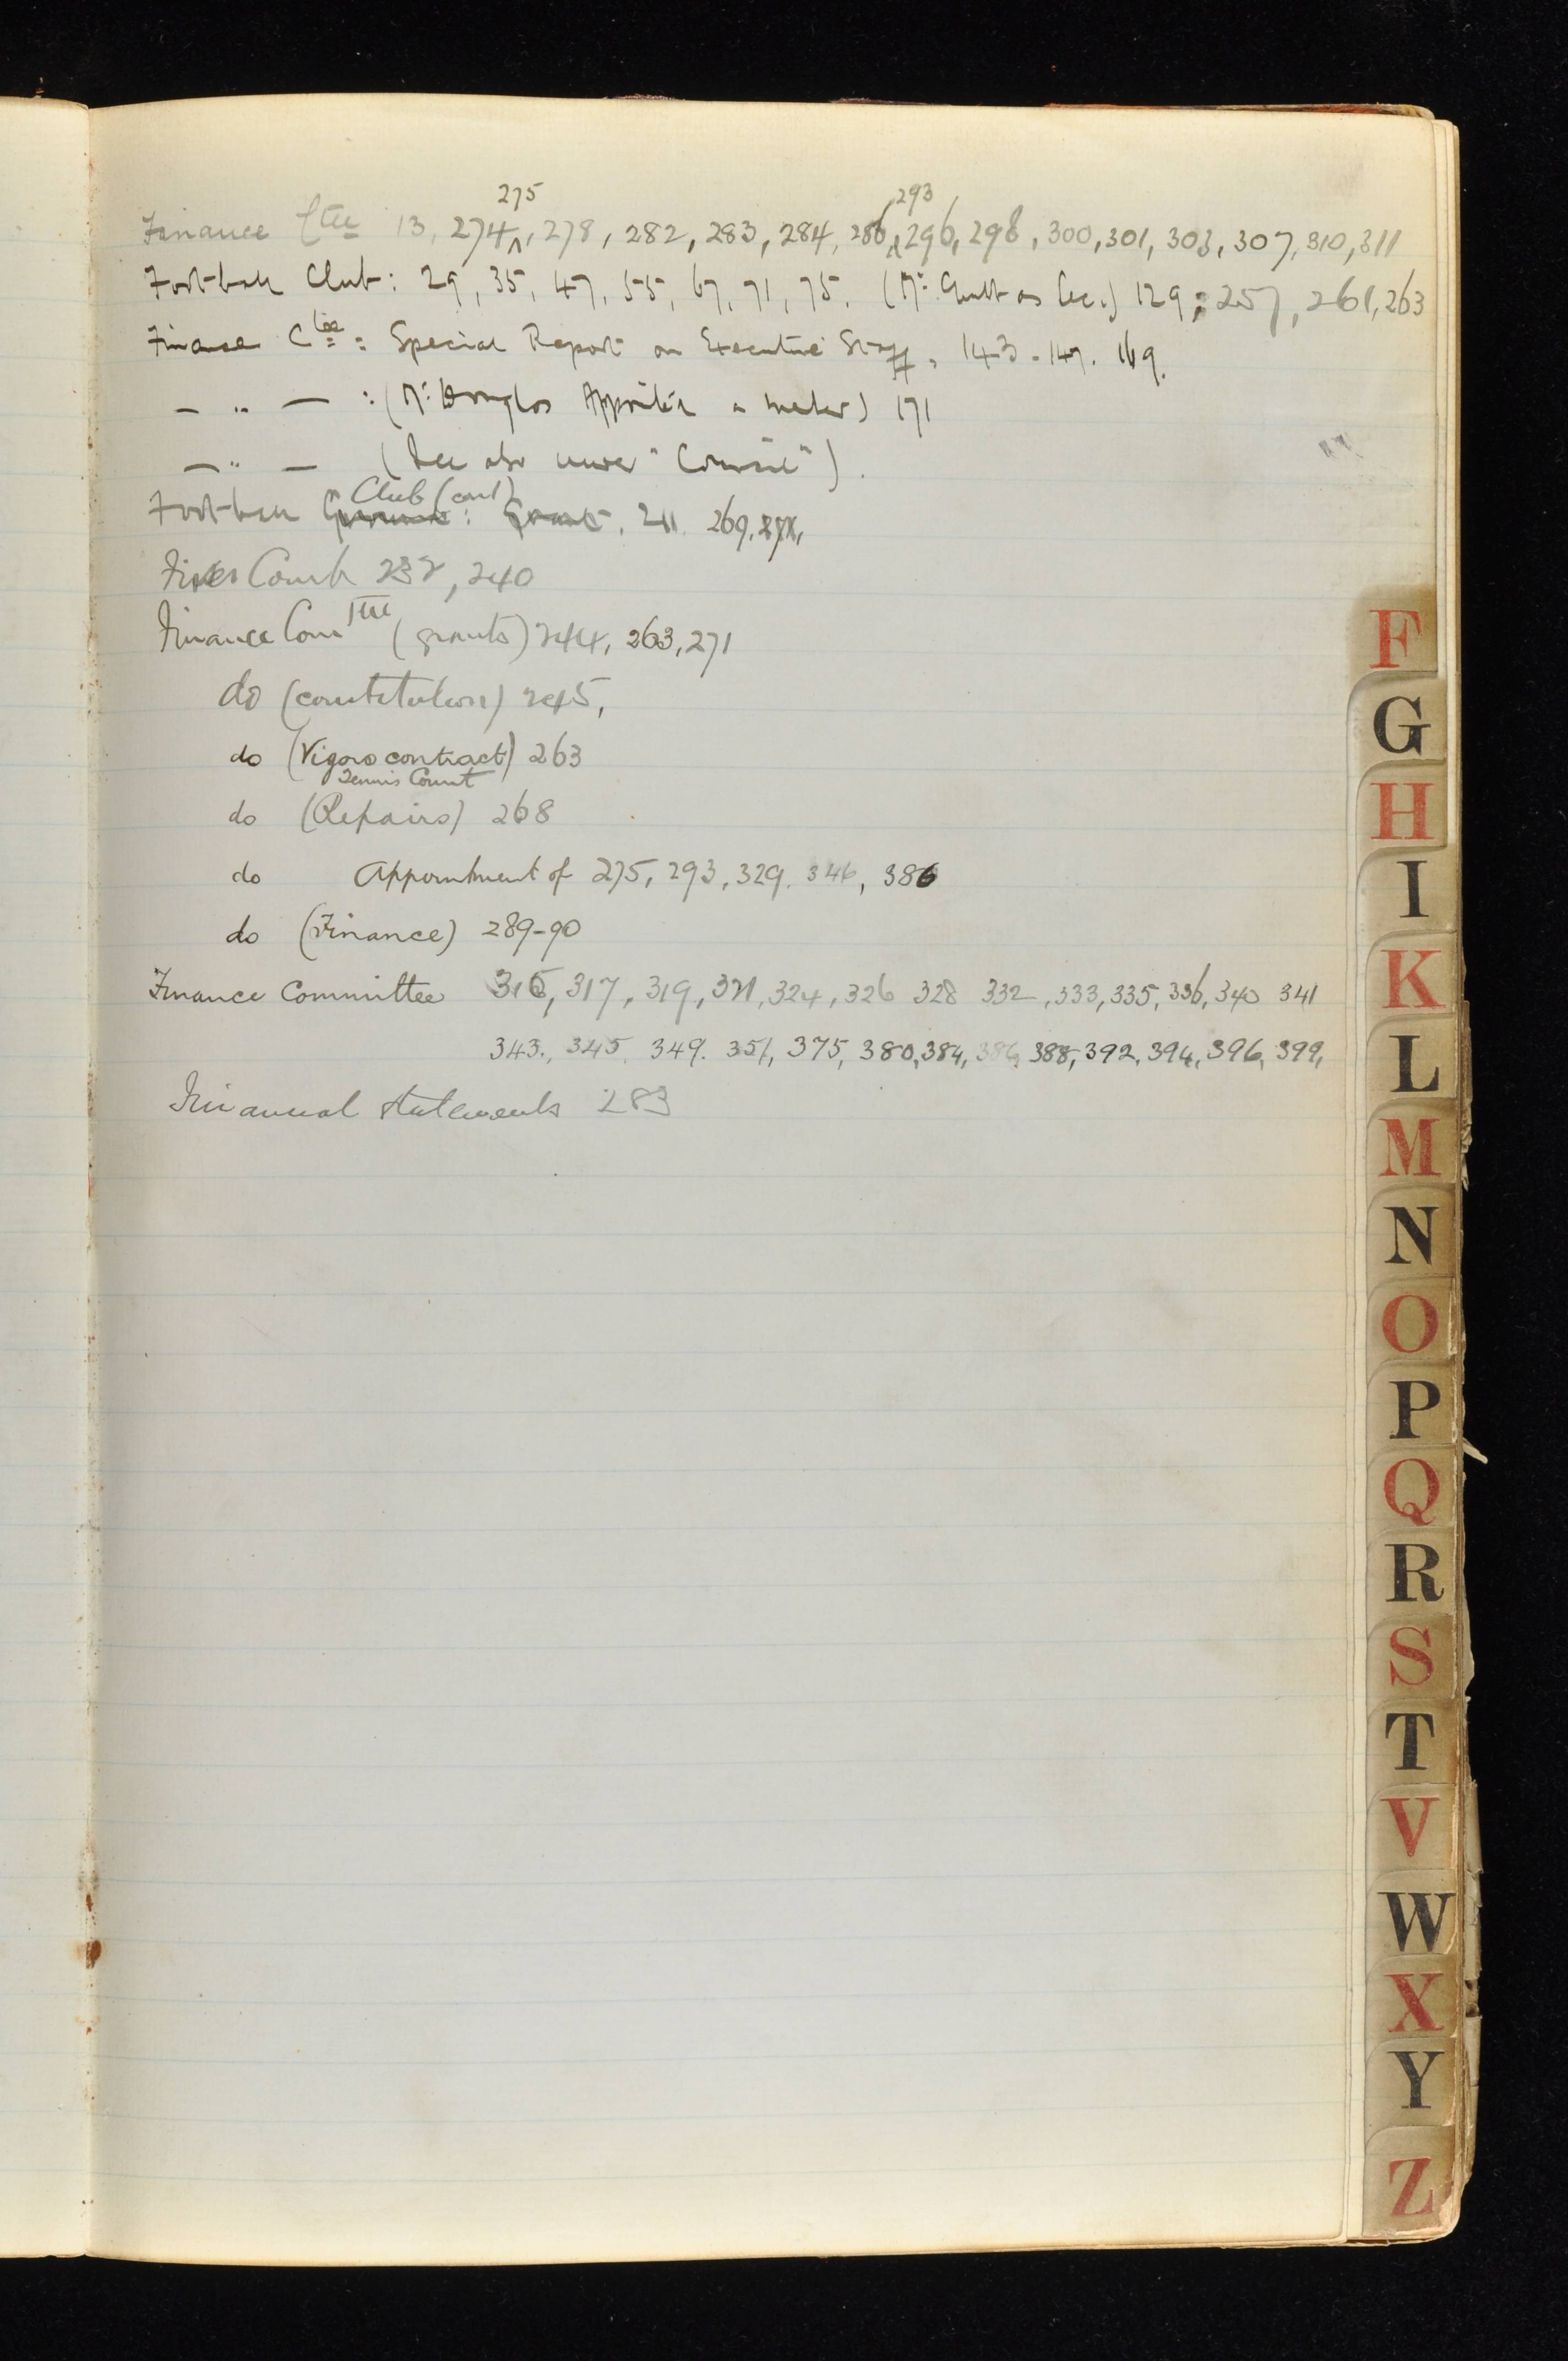 275 293
Finance Ctee 13, 274, 278, 282, 283, 284, 286, 296, 298, 300, 301, 303, 307, 310, 311
Foot-ball Club: 29, 35, 47, 55, 67, 71, 75. (Mr. as Sec.) 129; 257, 261, 263
Finance Ctee: Special Report on Executive Staff, 143-147. 169.
— " — : (Mr. Douglas ) 171
— " — (See also under "Council").
Club (cont)
Foot-ball : Grant. 211. 269,
Fives Court 232, 240
Finance Comttee (grants) 244, 263, 271
do (constitution) 245,
do (Vigoro contract) 263
Tennis Court
do (Repairs) 268
do Appointment of 275, 293, 329. 346, 386
do (Finance) 289-90
Finance Committee 315, 317, 319, 321, 324, 326 328 332, 333, 335, 336, 340 341
343., 345. 349. 351, 375, 380, 384, 386, 388, 392, 394, 396, 399,
Financial statements 283
F
G
H
I
K
L
M
N
O
P
Q
R
S
T
V
W
X
Y
Z